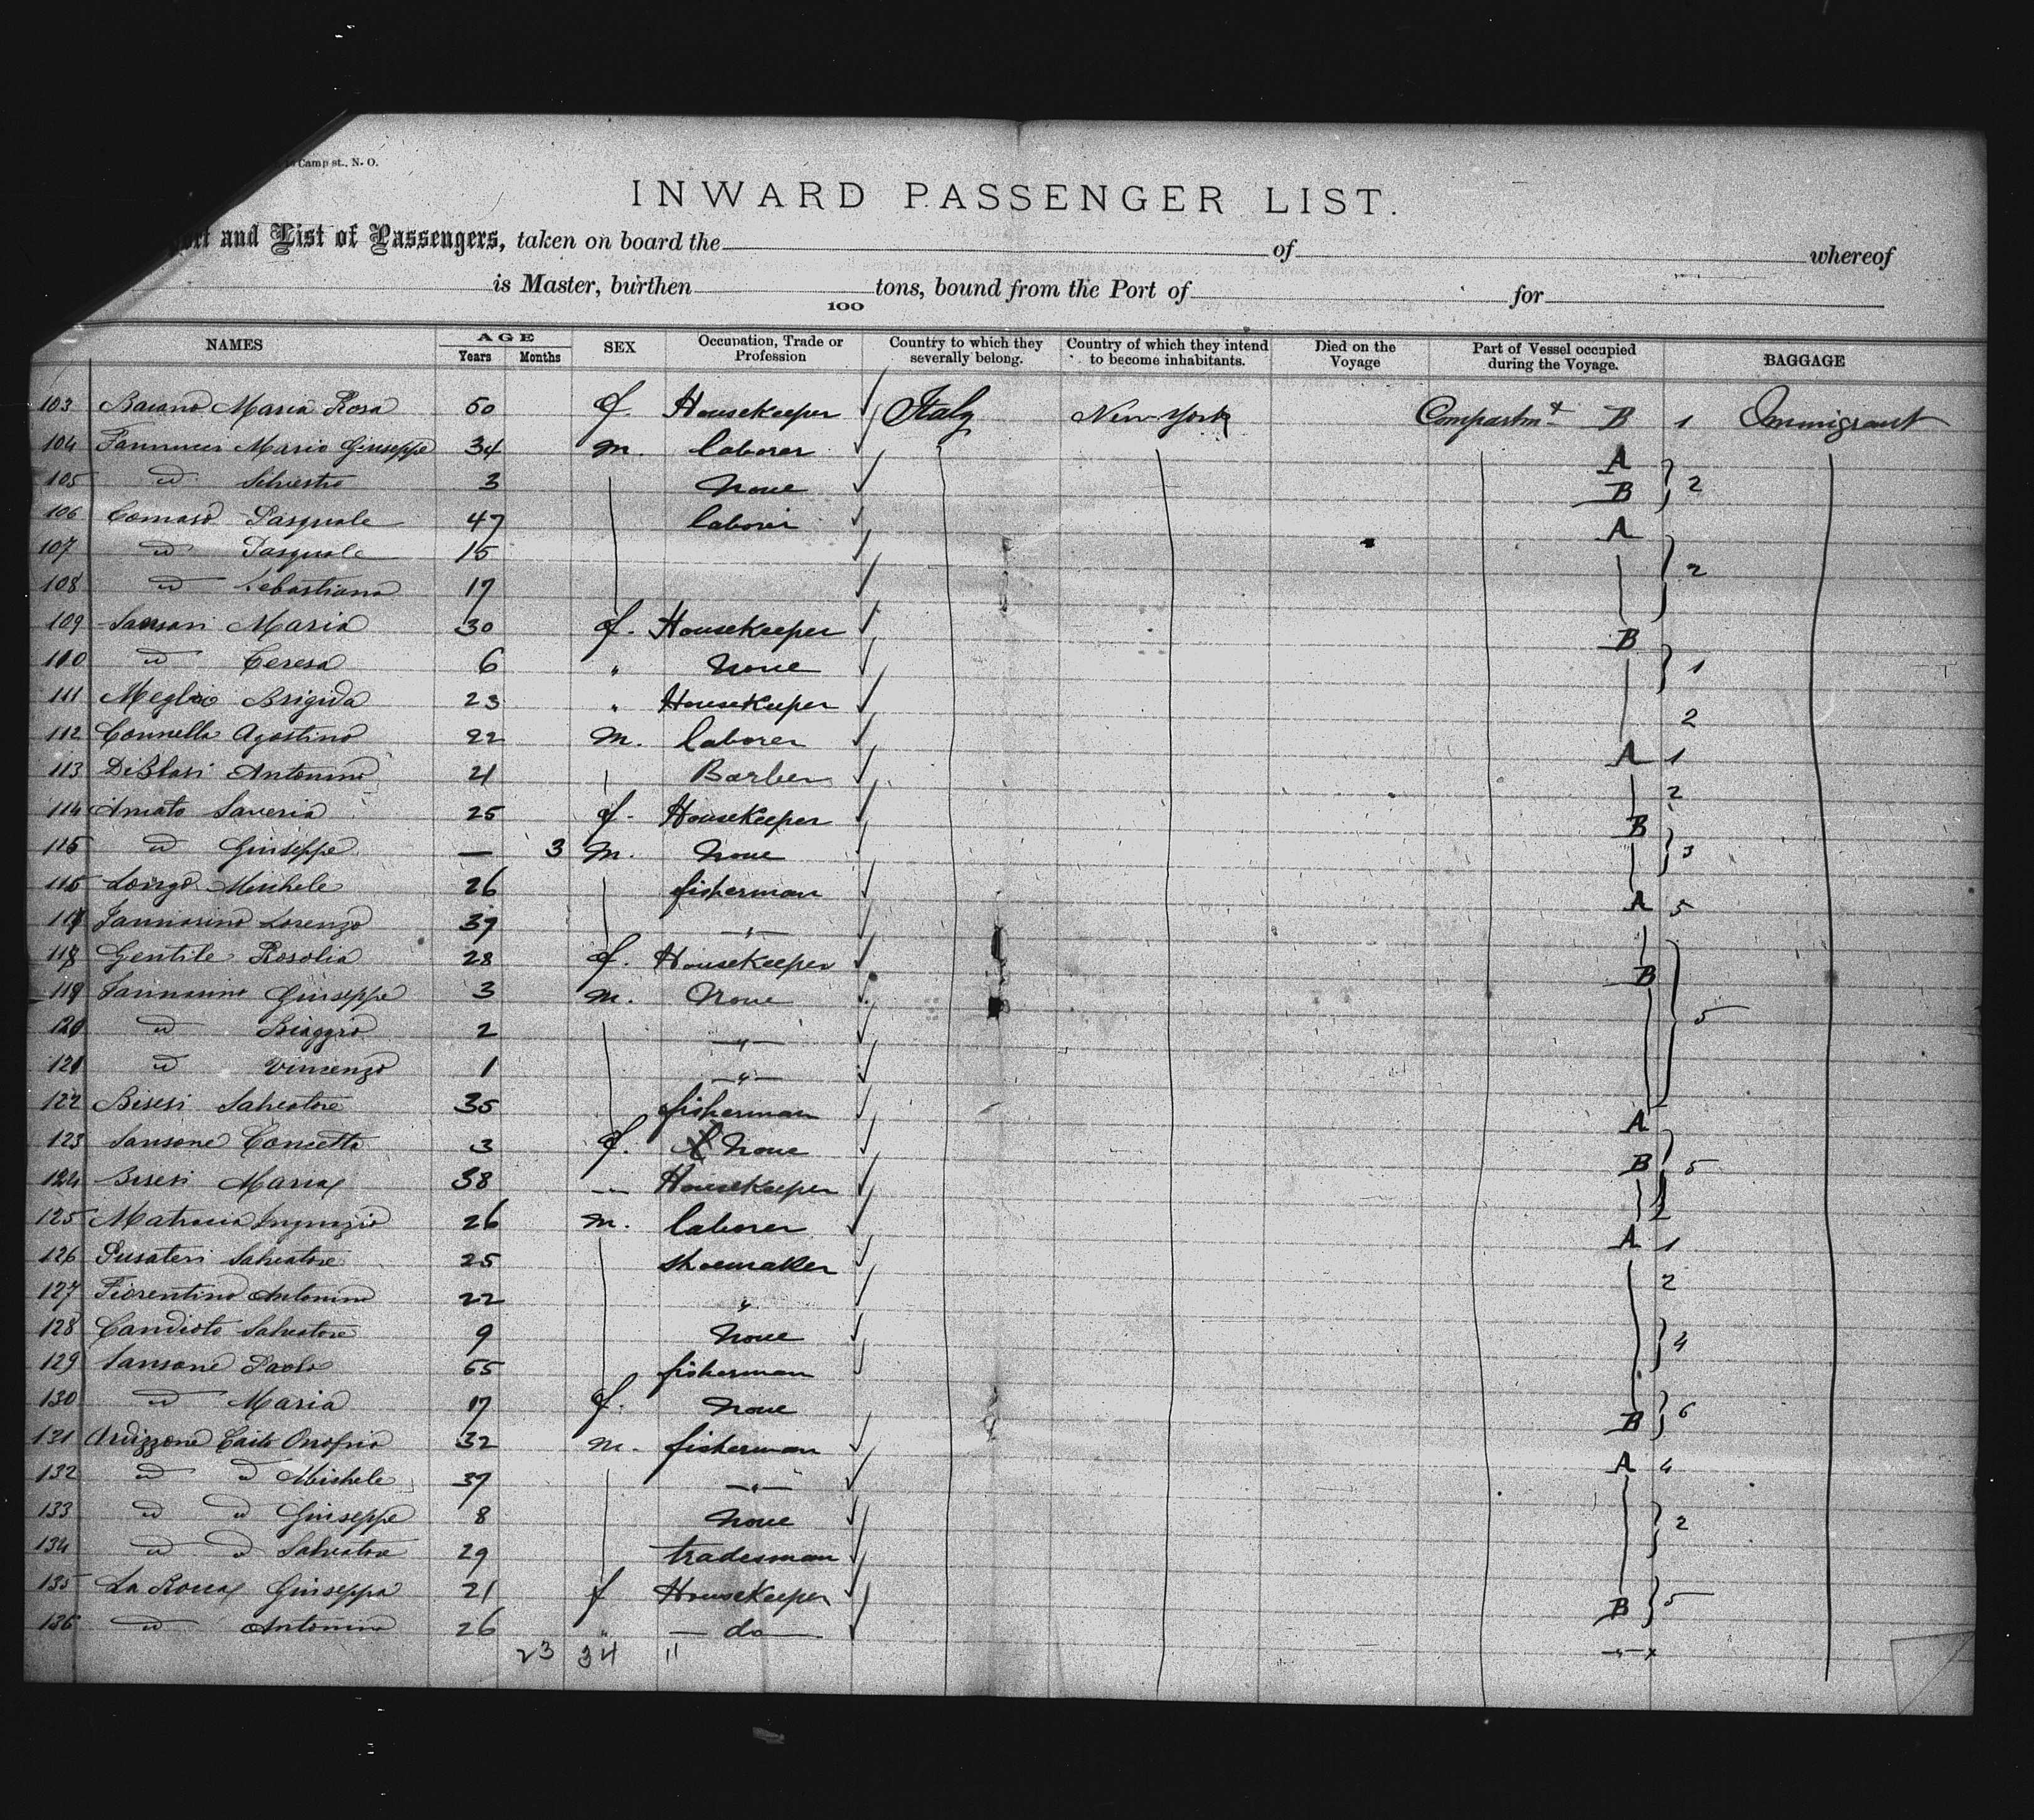 Camp st., N. O.
INWARD PASSENGER LIST.
and List of Passengers, taken on board the of whereof
is Master, burthen tons, bound from the Port of for
100
NAMES AGE Years Months SEX Occupation, Trade or Profession Country to which they severally belong. Country of which they intend to become inhabitants. Died on the Voyage Part of Vessel occupied during the Voyage. BAGGAGE
103 Baiano Maria Rosa 50 f. Housekeeper Italy New York Compartmt B 1 Immigrant
104 Mario Giuseppe 34 m. laborer A
105 " Silvestro 3 None B 2
106 Comaso Pasquale 47 laborer A
107 " Pasquale 15
108 " Sebastiano 17 2
109 Sansoni Maria 30 f. Housekeeper B
110 " Teresa 6 " None 1
111 Meglio Brigida 23 " Housekeeper 2
112 Connella Agostino 22 m. laborer A 1
113 DiBlasi Antonino 21 Barber 2
114 Amato Saveria 25 f. Housekeeper B
115 " Giuseppe — 3 m. None 3
115 Longo Michele 26 fisherman A 5
117 Iannarino Lorenzo 37 "
118 Gentile Rosolia 28 f. Housekeeper B
119 Iannarino Giuseppe 3 m. None
120 " Biaggio 2 " 5
121 " Vincenzo 1 "
122 Bisesi Salvatore 35 fisherman A
123 Sansone Concetta 3 f. None B 5
124 Bisesi Maria 38 " Housekeeper
125 Matracia Ingnazio 26 m. laborer A 1
126 Pusateri Salvatore 25 shoemaker 2
127 Fiorentino Antonino 22 "
128 Candioto Salvatore 9 None 4
129 Sansone Paolo 55 fisherman
130 " Maria 17 f. None B 6
131 Ardizzone Caito Onofrio 32 m. fisherman A 4
132 " " Michele 37 "
133 " " Giuseppe 8 None 2
134 " " Salvatore 29 tradesman
135 La Rocca Giuseppa 21 f Housekeeper B 5
136 " Antonina 26 " — do — "
23 34 11